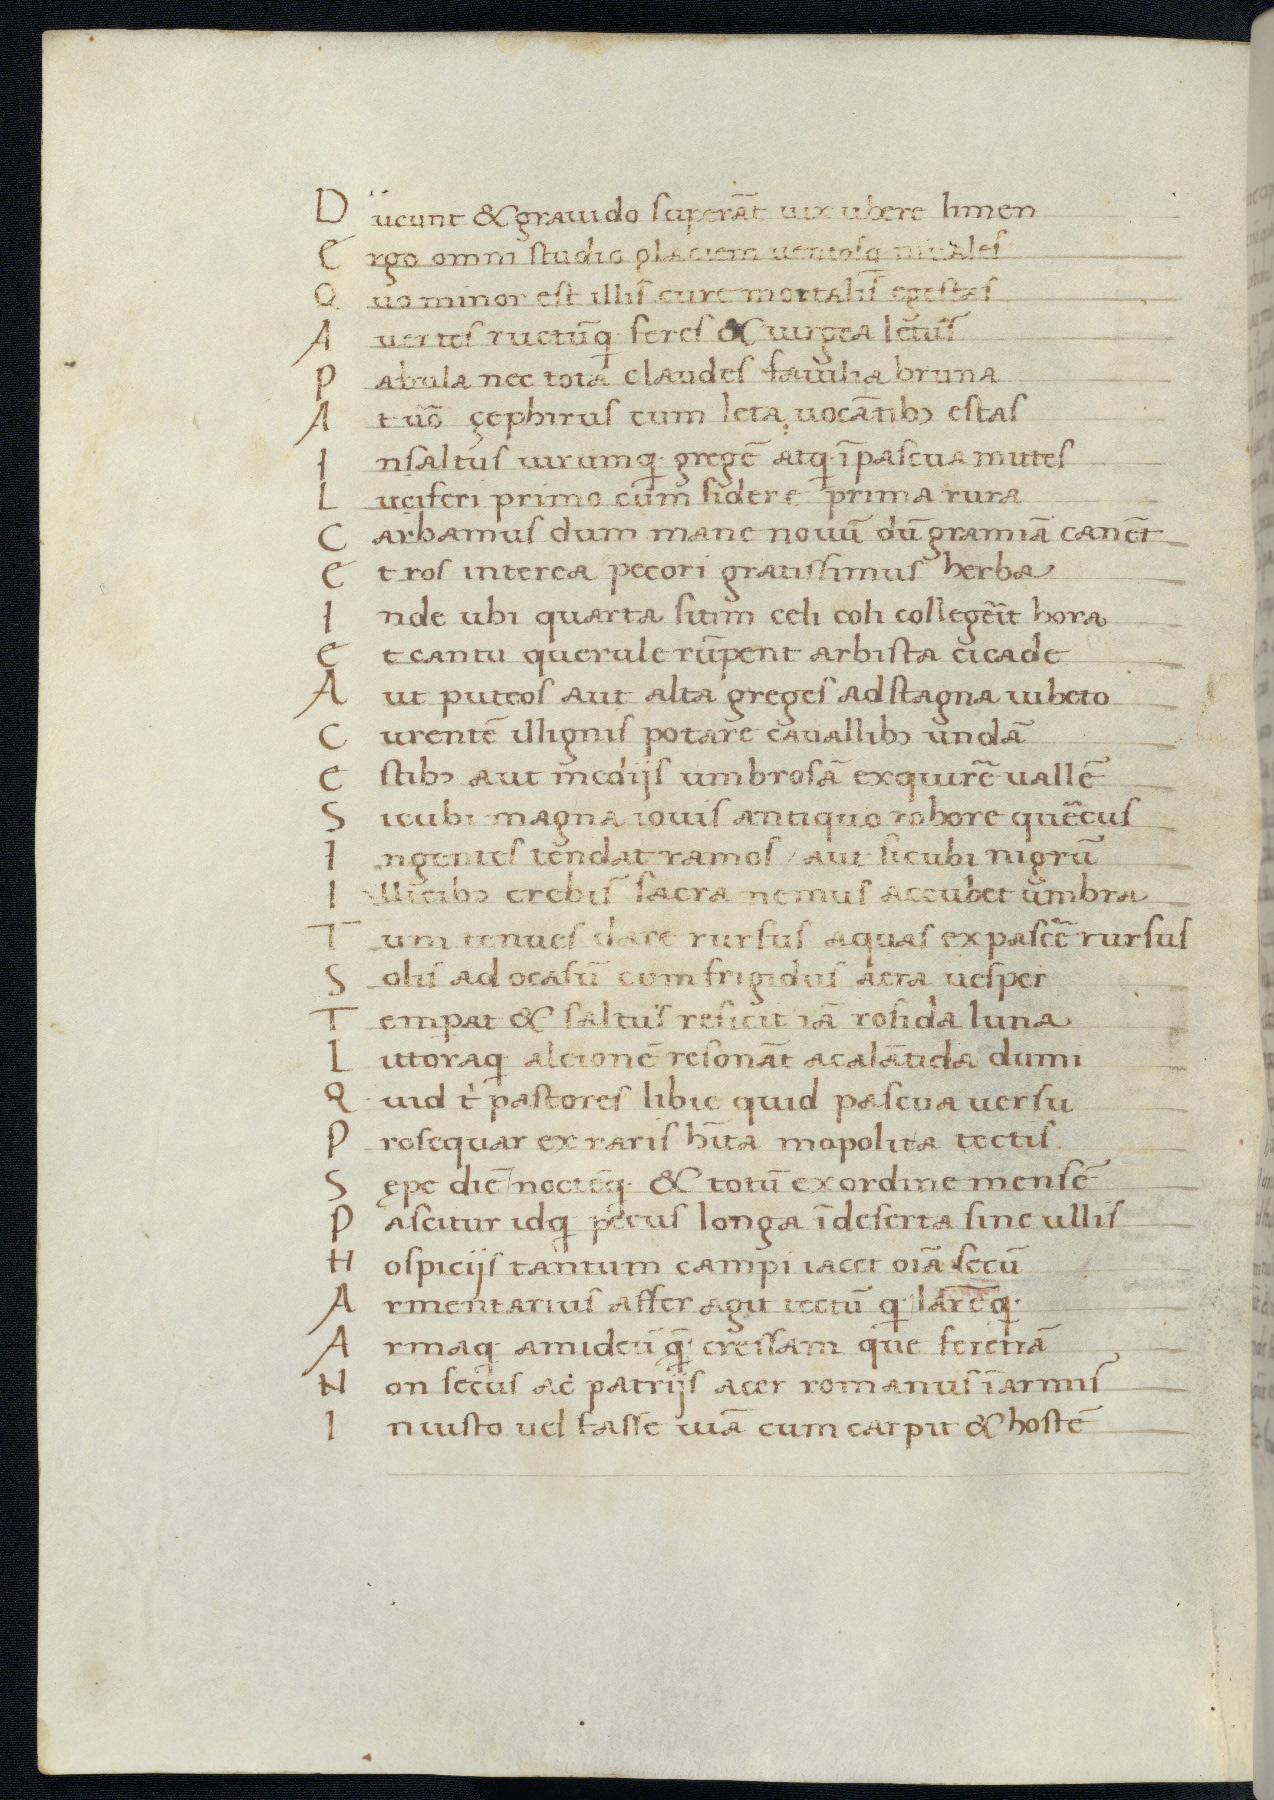 Ducunt & grauido superāt uix ubere limen
Ergo omni studio glaciem uentosq niuales
Quo minor est illis cure mortalis egestas
Auertes uictūq feres & uirgea letus
Pabula nec tota claudes fœnilia bruma
At uō çephirus cum leta uocātibꝫ estas
In saltus utrumq gregē atq ī pascua mutes
Luciferi primo cum sidere prima rura
Carbamus dum mane nouū dū gramīa canēt
Et ros in terea pecori gratissimus herba
Inde ubi quarta sitim celi coli collegeīt hora
Et cantu querule rūpent arbista cicade
Aut puteos aut alta greges ad stagna iubeto
Curentē illignis potare cauallibꝫ undā
Estibꝫ aut medijs umbrosā exquirē uallē
Sicubi magna iouis antiquo robore quercus
Ingentes tendat ramos / aut sicubi nigrū
Illicibꝫ crebis sacra nemus accubet umbra
Tum tenues dare rursus aquas ex pascē rursus
Solis ad ocasū cum frigidus aera uesper
Tempat & saltus reficit iā rosida luna
Littoraq alcionē resonāt acalātida dumi
Quid t' pastores libie quid pascua uersu
Prosequar ex raris hīta mapolita tectis
Sępe diē / noctēq & totū ex ordine mensē
Pascitur idq pecus longa ī deserta sine ullis
Hospicijs tantum campi iacet oīa secū
Armentarius affer agit tectū q larēq
Armaq amideū q cressam que feretrā
Non secus ac patrijs acer romanus ī armis
Iniusto uel fasse uiā cum carpit & hostē